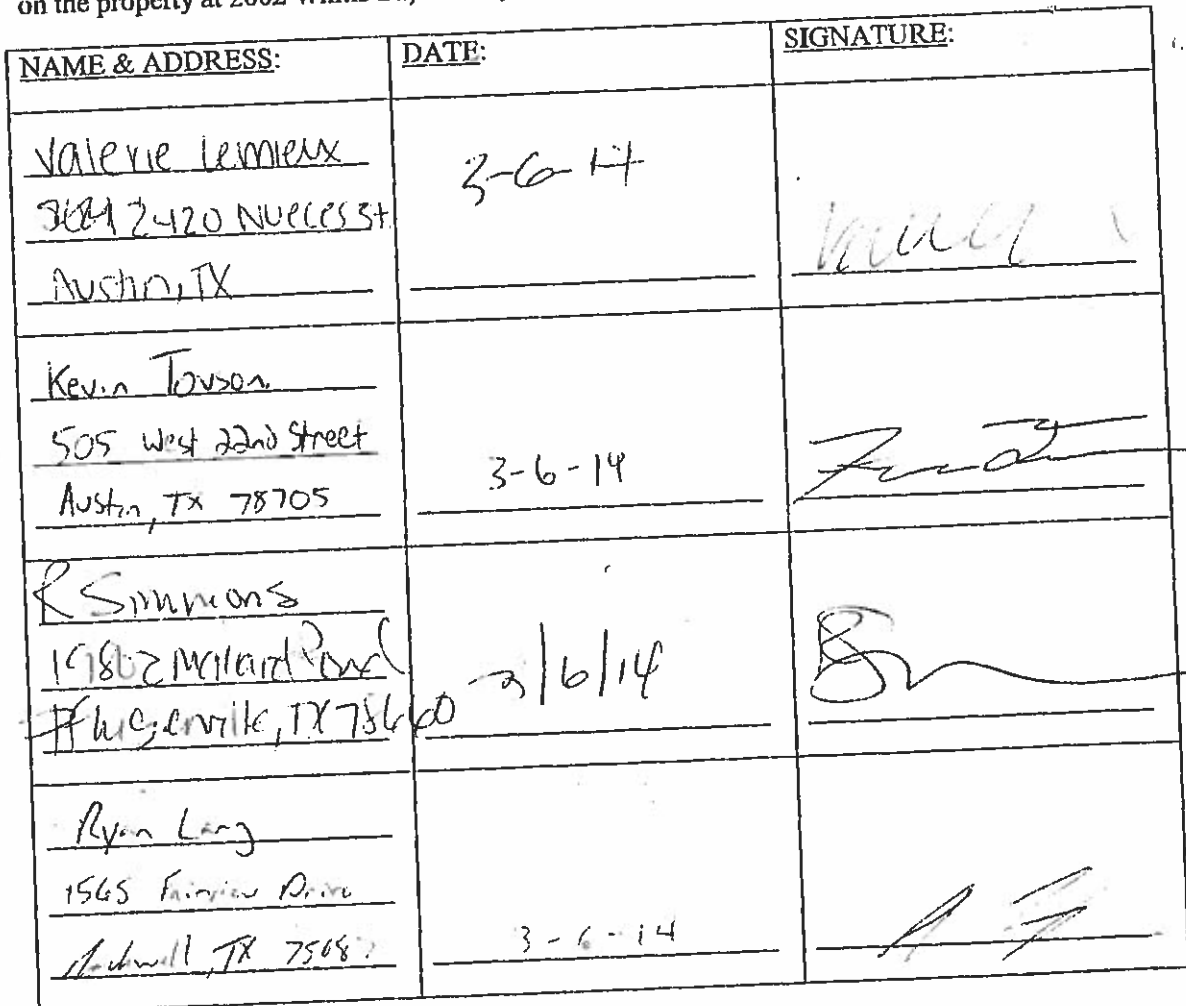 on the property at 2002
NAME & ADDRESS: DATE: SIGNATURE:
Valerie Lemieux
2420 Nueces St.
Austin, TX
3-6-14
Kevin Towson
505 West 22nd Street
Austin, TX 78705
3-6-14
R Simmons
Mallard Pond
Pflugerville, TX 78660
3/6/14
Ryan Lang
1565 Fairview Drive
TX
3-6-14